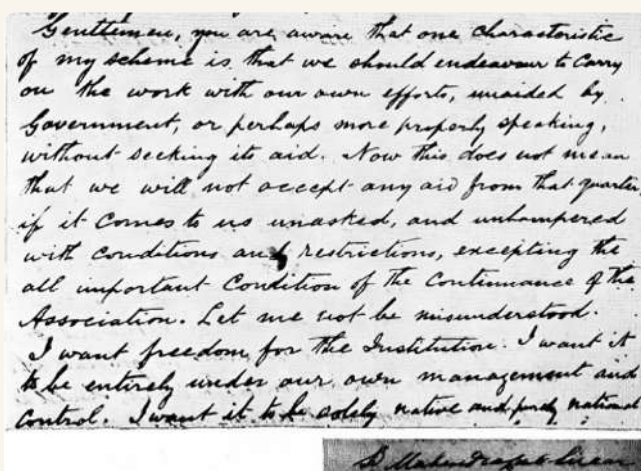 Gentlemen, you are aware that one characteristic
of my scheme is that we should endeavour to carry
on the work with our own efforts, unaided by
Government, or perhaps more properly speaking,
without seeking its aid. Now this does not mean
that we will not accept any aid from that quarter,
if it comes to us unasked, and unhampered
with conditions and restrictions, excepting the
all important Condition of the Continuance of the
Association. Let me not be misunderstood.
I want freedom for the Institution. I want it
to be entirely under our own management and
control. I want it to be solely native and purely national